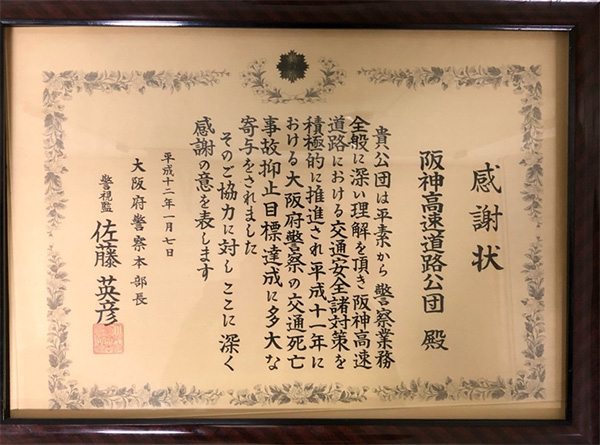 感謝状
阪神高速道路公団 殿
貴公団は平素から警察業務
全般に深い理解を頂き阪神高速
道路における交通安全諸対策を
積極的に推進され平成十一年に
おける大阪府警察の交通死亡
事故抑止目標達成に多大な
寄与をされました
そのご協力に対しここに深く
感謝の意を表します
平成十二年一月七日
大阪府警察本部長
警視監 佐藤英彦